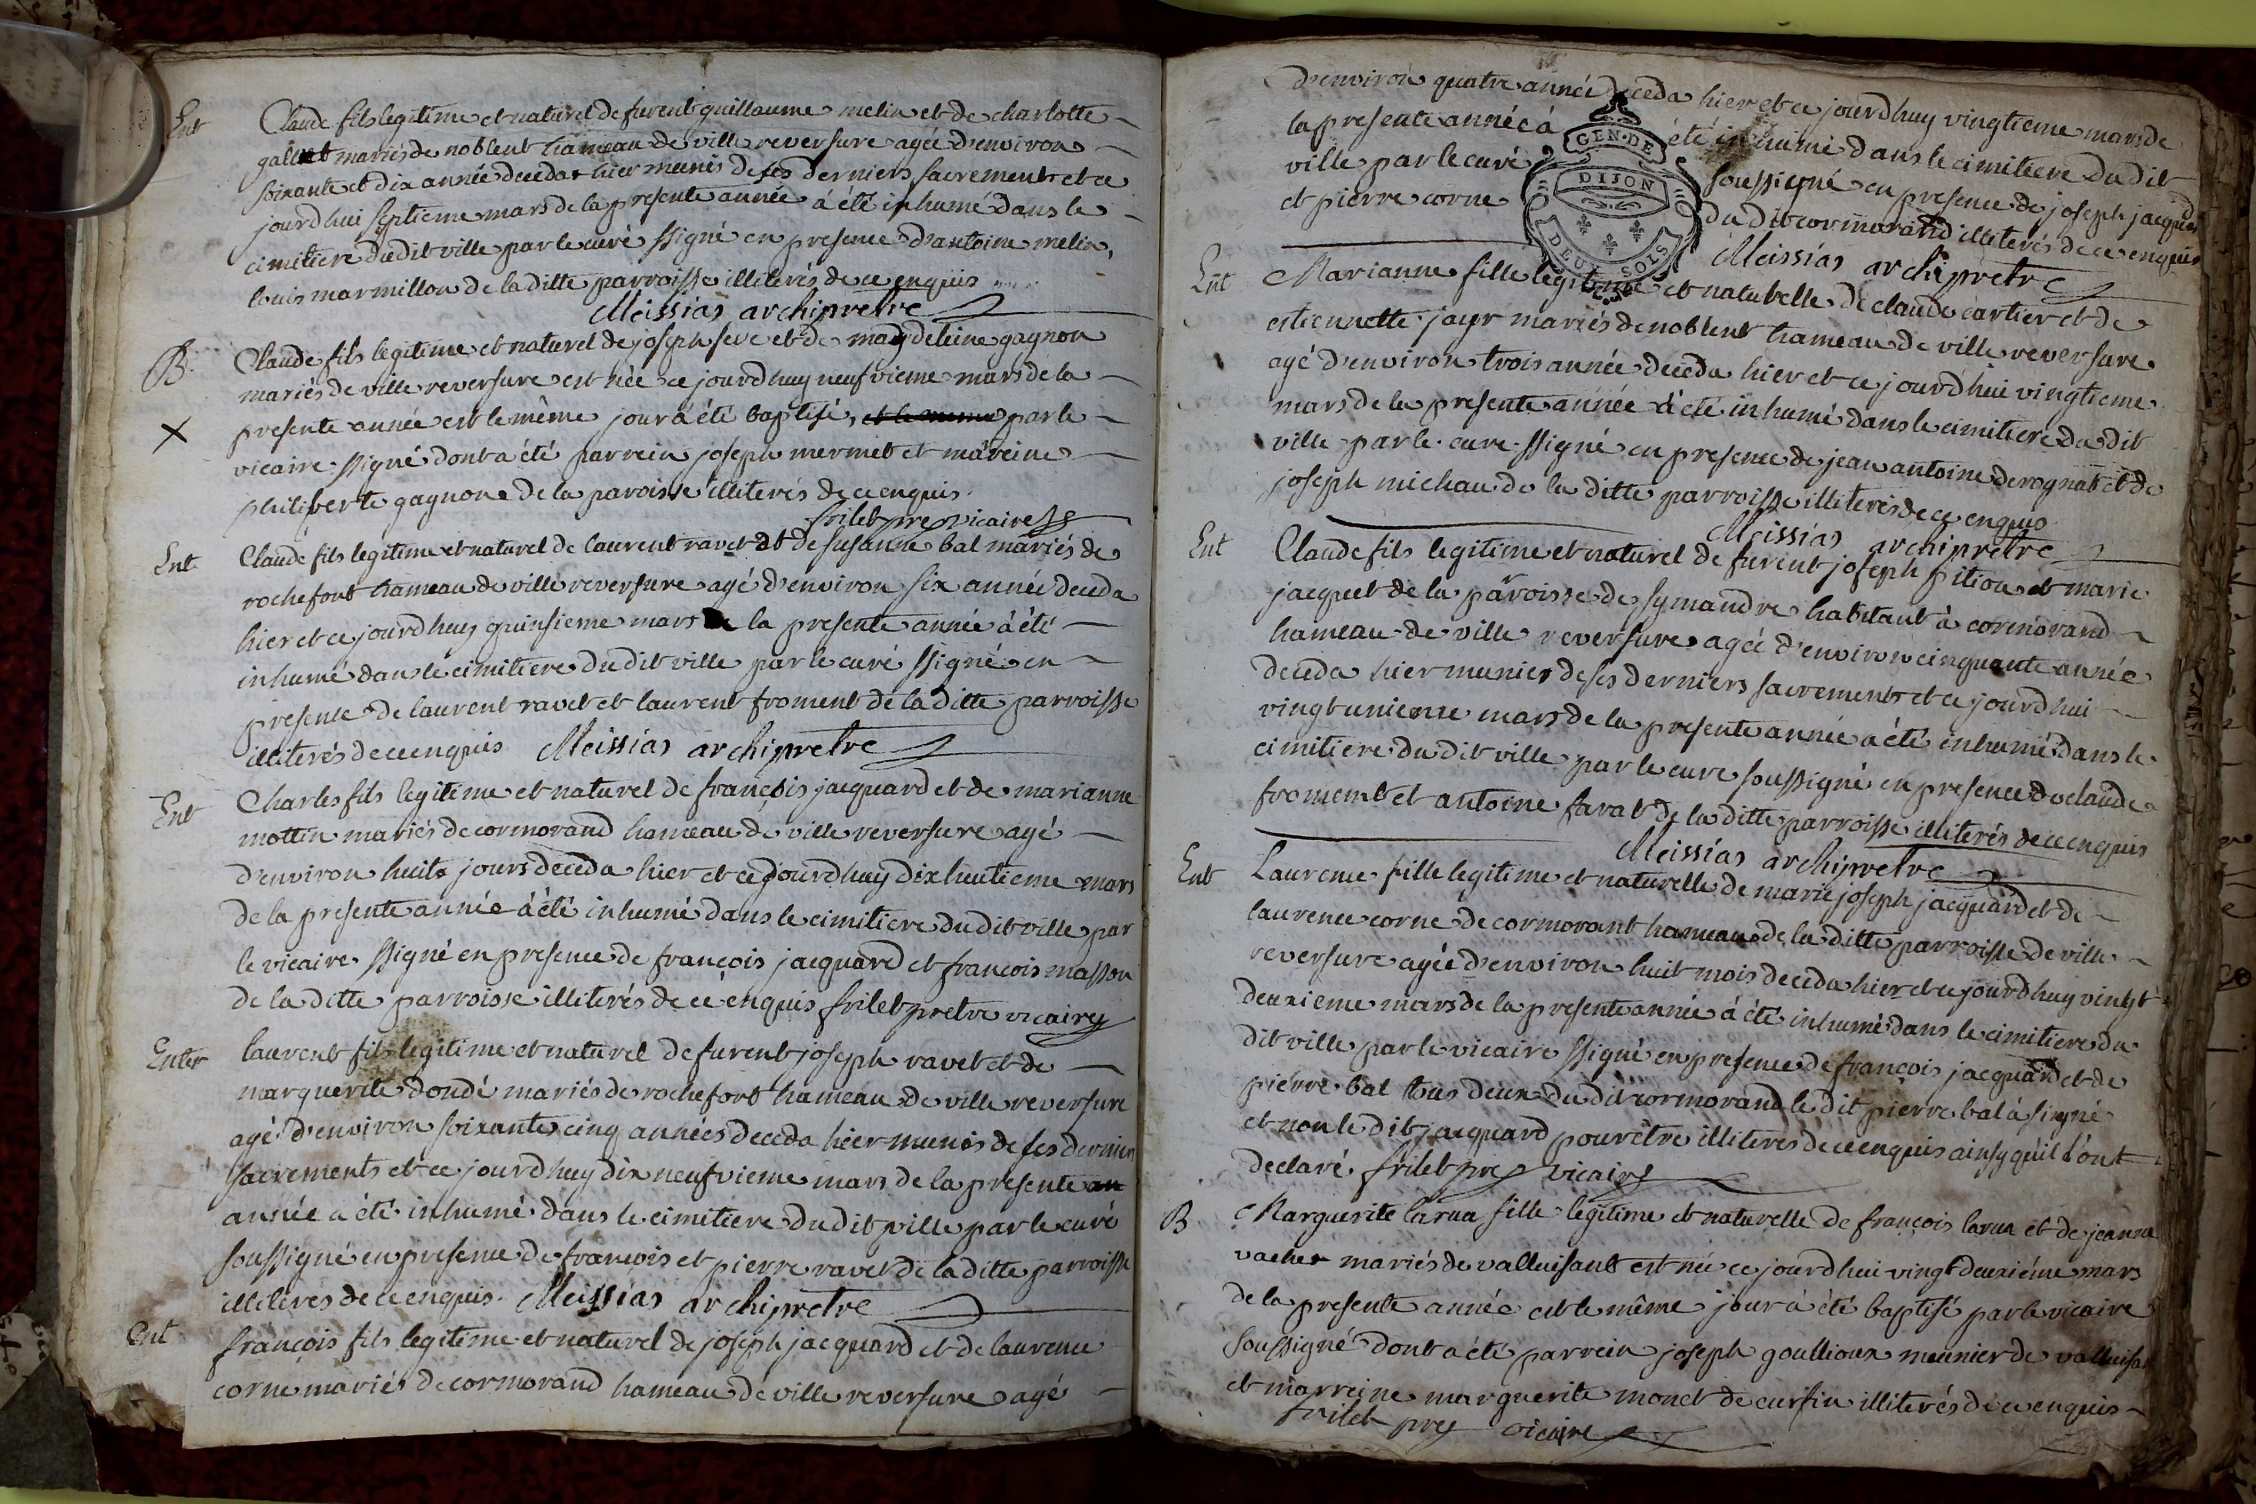 Ent
Claude fils legitime et naturel de furent guillaume melin et de charlotte
gallet mariés de noblent hameau de ville reversure agée d'environ
soixante et dix année deceda hier munis de ses derniers sacrements et ce
jourd'hui septieme mars de la presente année à été inhumé dans le
cimitiere du dit ville par le curé ssigné en presence d'antoine melin,
louis marmillon de la ditte parroisse illiterés de ce enquis
Meissias archipretre
B.
Claude fils legitime et naturel de joseph seve et de magdeleine gagnon
mariés de ville reversure est née ce jourd huy neufvieme mars de la
X
presente année et le même jour à été baptisé, et le meme par le
vicaire ssigné dont a été parrein joseph mermet et mareine
philiberte gagnon de la paroisse illiterés de ce enquis.
frilet pre vicaire
Ent
Claude fils legitime et naturel de laurent ravet et de susanne bal mariés de
rochefort hameau de ville reversure agé d'environ six année deceda
hier et ce jourd huy quinsieme mars de la presente année à été
inhumé dans le cimitiere du dit ville par le curé ssigné en
presence de laurent ravet et laurent froment de la ditte parroisse
illiterés de ce enquis Meissias archipretre
Ent
Charles fils legitime et naturel de françois jacquard et de marianne
mottin mariés de cormorand hameau de ville reversure agé
d'environ huit jours deceda hier et ce jourd huy dix huitieme mars
de la presente année à été inhumé dans le cimitiere du dit ville par
le vicaire ssigné en presence de françois jacquard et françois masson
de la ditte parroisse illiterés de ce enquis frilet pretre vicaire
Enter
laurent fils legitime et naturel de furent joseph ravet et de
marguerite dondé mariés de rochefort hameau de ville reversure
agé d'environ soixante cinq années deceda hier munis de ses derniers
sacrements et ce jourd huy dix neufvieme mars de la presente an
année a été inhumé dans le cimitiere du dit ville par le curé
soussigné en presence de francois et pierre ravet de la ditte parroisse
illiterés de ce enquis. Meissias archipretre
Ent
françois fils legitime et naturel de joseph jacquard et de laurence
corne mariés de cormorand hameau de ville reversure agé
d'environ quatre année deceda hier et ce jourd huy vingtieme mars de
la presente année à été inhumé dans le cimitiere du dit
ville par le curé soussigné en presence de joseph jacquard
et pierre corne du dit cormorand illiterés de ce enquis
GEN. DE
DIJON
DEUX SOLS
Meissias archipretre
Ent
Marianne fille legitime et naturelle de claude cartier et de
estiennette jayr mariés de noblent hameau de ville reversure
agé d'environ trois année deceda hier et ce jourd'hui vingtieme
mars de la presente année à été inhumé dans le cimitiere du dit
ville par le curé ssigné en presence de jean antoine derognat et de
joseph michau de la ditte parroisse illiterés de ce enquis
Meissias archipretre
Ent
Claude fils legitime et naturel de furent joseph pition et marie
jacquet de la paroisse de symandre habitant à cormorand
hameau de ville reversure agée d'environ cinquante année
deceda hier munies de ses derniers sacrements et ce jourd'hui
vingtunieme mars de la presente année a été inhumé dans le
cimitiere du dit ville par le curé soussigné en presence de claude
froment et antoine farat de la ditte parroisse illiterés de ce enquis
Meissias archipretre
Ent
Laurence fille legitime et naturelle de marie joseph jacquard et de
laurence corne de cormorant hameau de la ditte parroisse de ville
reversure agée d'environ huit mois deceda hier et ce jourd huy vingt
deuxieme mars de la presente année à été inhumé dans le cimitiere du
dit ville par le vicaire ssigné en presence de françois jacquard et de
pierre bal tous deux du dit cormorand le dit pierre bal à signé
et non le dit jacquard pour être illiteres de ce enquis ainsy qu'il l'ont
declaré. frilet pre vicaire
B
Marguerite larua fille legitime et naturelle de françois larua et de jeanne
vacher mariés de valluisant est née ce jourd hui vingt deuxiéme mars
de la presente année et le même jour à été baptisé par le vicaire
soussigné dont a été parrein joseph goullioux meunier de valluisa
et marreine marguerite monet de curfin illiterés de ce enquis
frilet pre vicaire